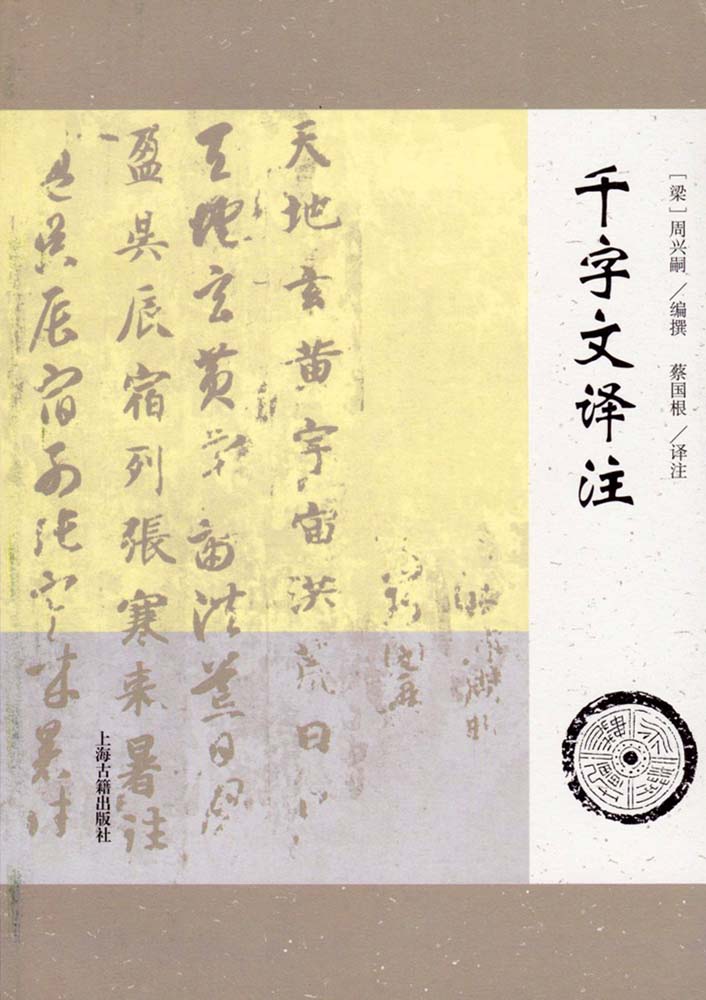 ［梁］周兴嗣／编撰 蔡国根／译注
千字文译注
天地玄黄宇宙洪荒日月
天地玄黄宇宙洪荒日月
盈昃辰宿列張寒来暑往
盈昃辰宿列张寒来暑往
上海古籍出版社